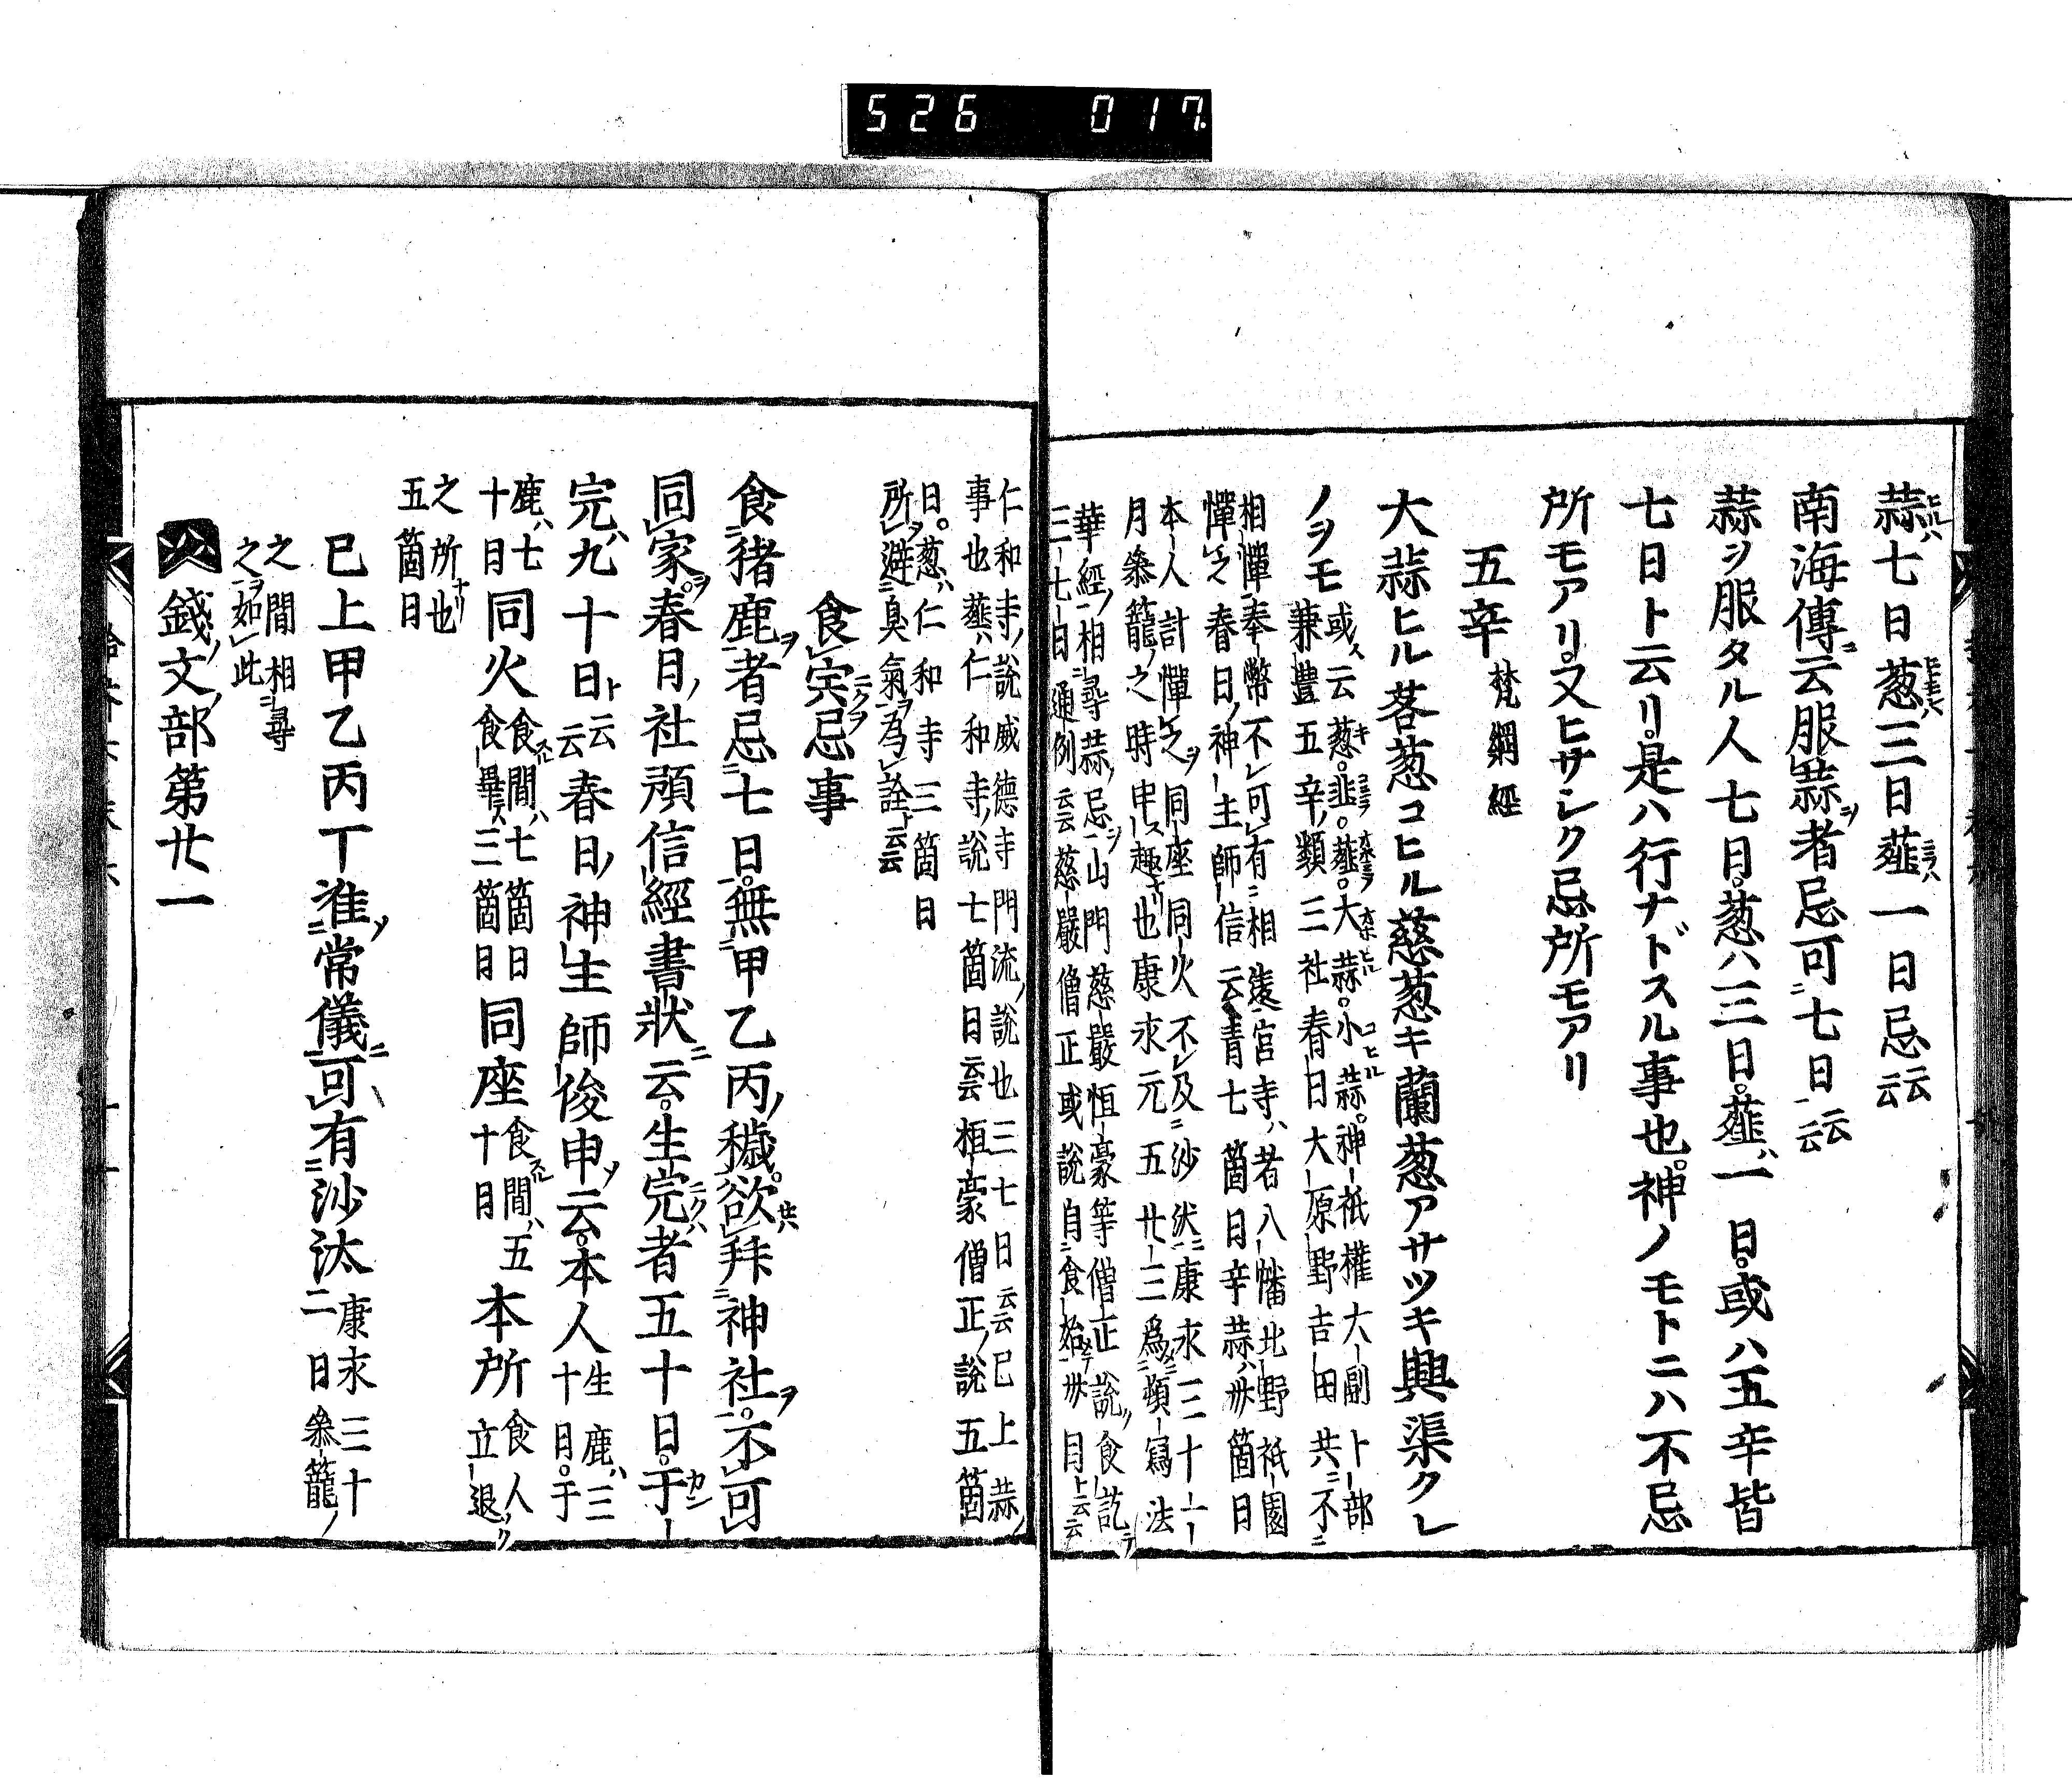 526 017
蒜七日葱三日薤一日忌云云
南海傳云服蒜者忌可七日云云
蒜ヲ服タル人七日葱ハ三日薤ハ一日或ハ五辛皆
七日ト云リ是ハ行ナドスル事也神ノモトニハ不忌
所モアリ又ヒサシク忌所モアリ
五辛 梵網經
大蒜ヒル茖葱コヒル慈葱キ蘭葱アサツキ興渠クレ
ノヲモ
或云葱韮薤大蒜小蒜神祇權大副卜部
兼豊五辛類三社春日大原野吉田共不
相憚奉幣不可有相違宮寺者八幡北野祇園
憚之春日神主師信云青七箇日辛蒜卅箇日
本人計憚之同座同火不及沙汰康永三十一
月參籠之時申趣也康永元五廿三爲頓寫法
華經相尋蒜忌山門慈嚴恒豪等僧正說食訖
三七日通例云云慈嚴僧正或說自食始卅日ト云云
仁和寺說威德寺門流說也三七日云云已上蒜
事也薤仁和寺說七箇日云云桓豪僧正說五箇
日葱仁和寺三箇日
所避臭氣爲詮云云
食宍忌事
食猪鹿者忌七日無甲乙丙穢欲拜神社不可
同家春日社預信經書狀云生完者五十日于
完九十日ト云云春日神主師俊申云本人生鹿三十日于
鹿七十日同火食間七箇日食畢三箇日同座食間五十日本所食人立退
之所也五箇日
已上甲乙丙丁准常儀可有沙汰康永三十二日參籠
之間相尋之如此
錢文部第廿一